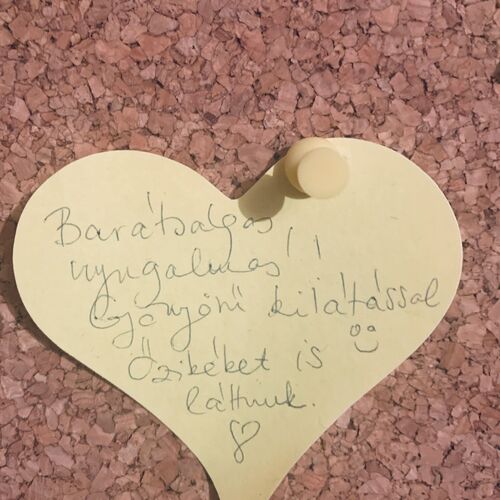 Barátságos,
nyugalmas!!
Gyönyörű kilátással
Őzikéket is
láttunk.